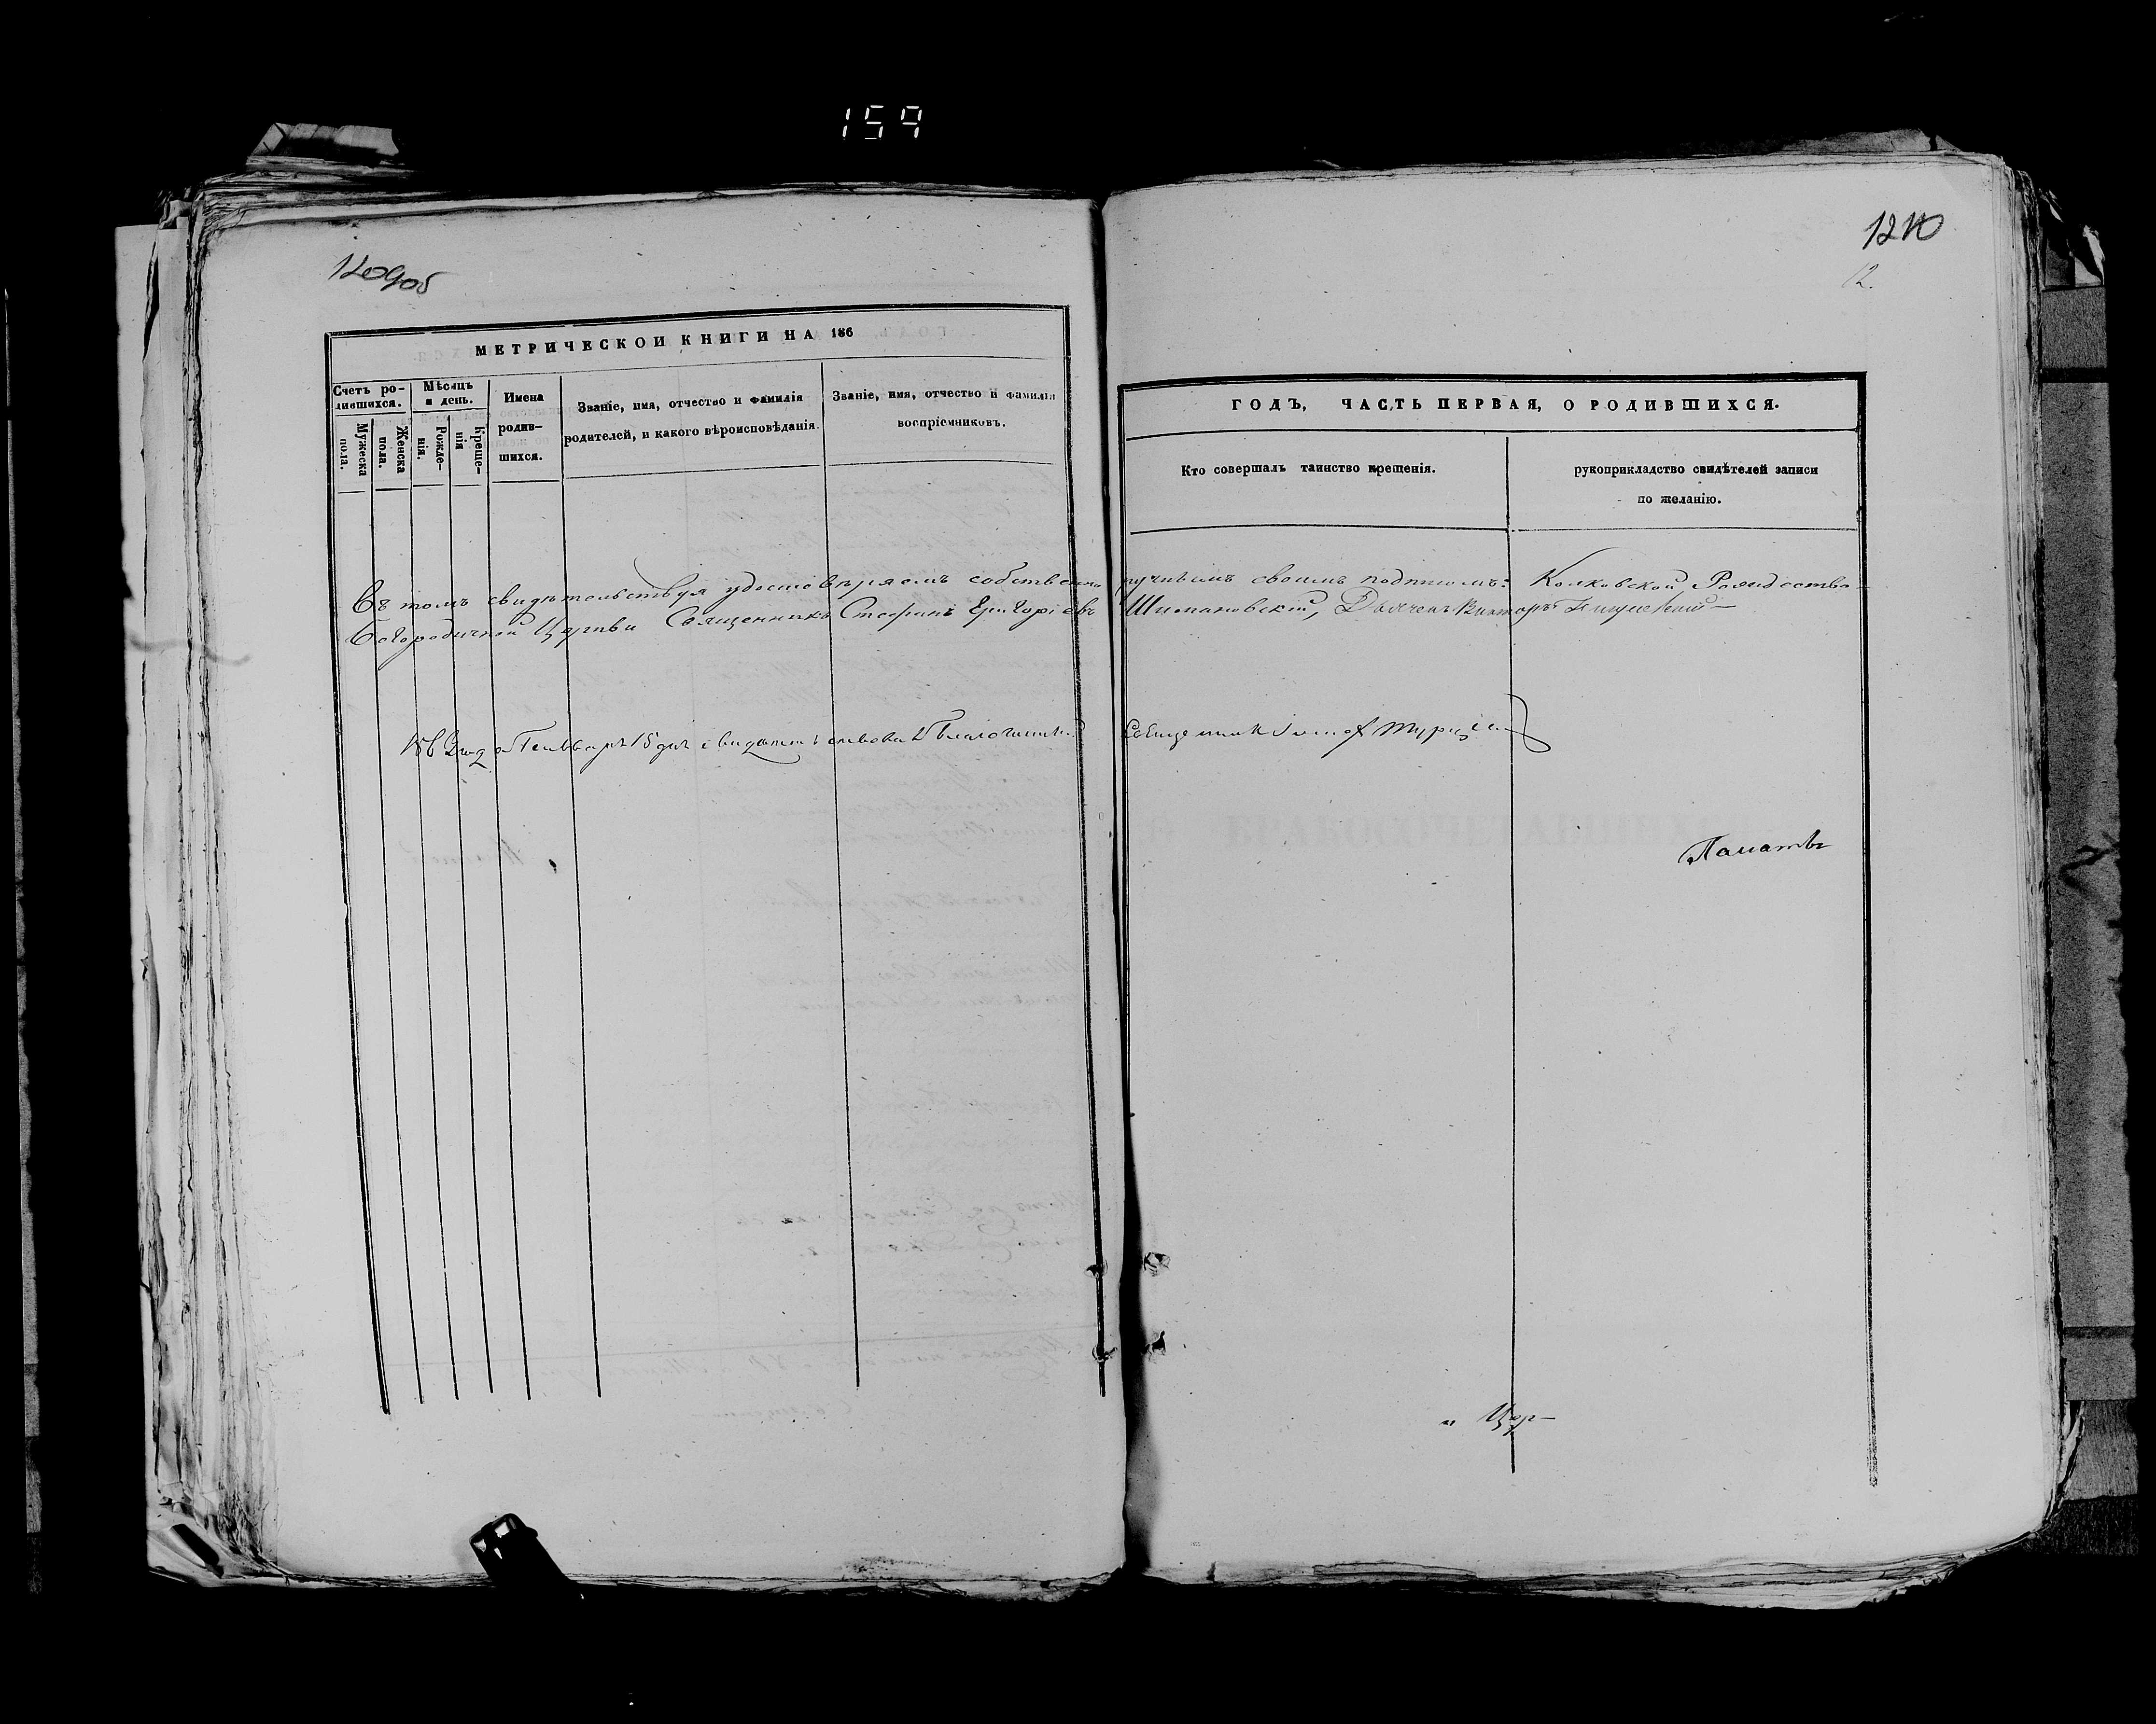 159
1209об
1210
12.
МЕТРИЧЕСКОЙ КНИГИ НА 186
Счетъ ро-
дившихся.
Мѣсяцъ
и день.
Имена
родив-
шихся.
Званіе, имя, отчество и фамилія
родителей, и какого вѣроисповѣданія.
Званіе, имя, отчество и фамилія
воспріемниковъ.
Мужеска
пола.
Женска
пола.
Рожде-
нія.
Креще-
нія
ГОДЪ, ЧАСТЬ ПЕРВАЯ, О РОДИВШИХСЯ.
Кто совершалъ таинство крещенія.
рукоприкладство свидѣтелей записи
по желанію.
Въ томъ свидѣтельствуя удостовѣряемъ собственно ручнымъ своимъ подписомъ: Колковской Рождество
Богородичной Церкви Священникъ Стефанъ Григоріевъ Шимановскій, Дьячекъ Викторъ
186 года Генваря 15 дня свидѣтельствовалъ Благочинный Священникъ
Палатѣ